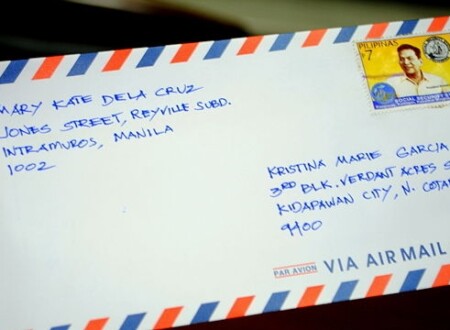 MARY KATE DELA CRUZ
JONES STREET, REYVILLE SUBD.
INTRAMUROS, MANILA
1002
PILIPINAS
7
KRISTINA MARIE GARCIA
3RD BLK. VERDANT ACRES
KIDAPAWAN CITY, N.
9400
PAR AVION VIA AIR MAIL